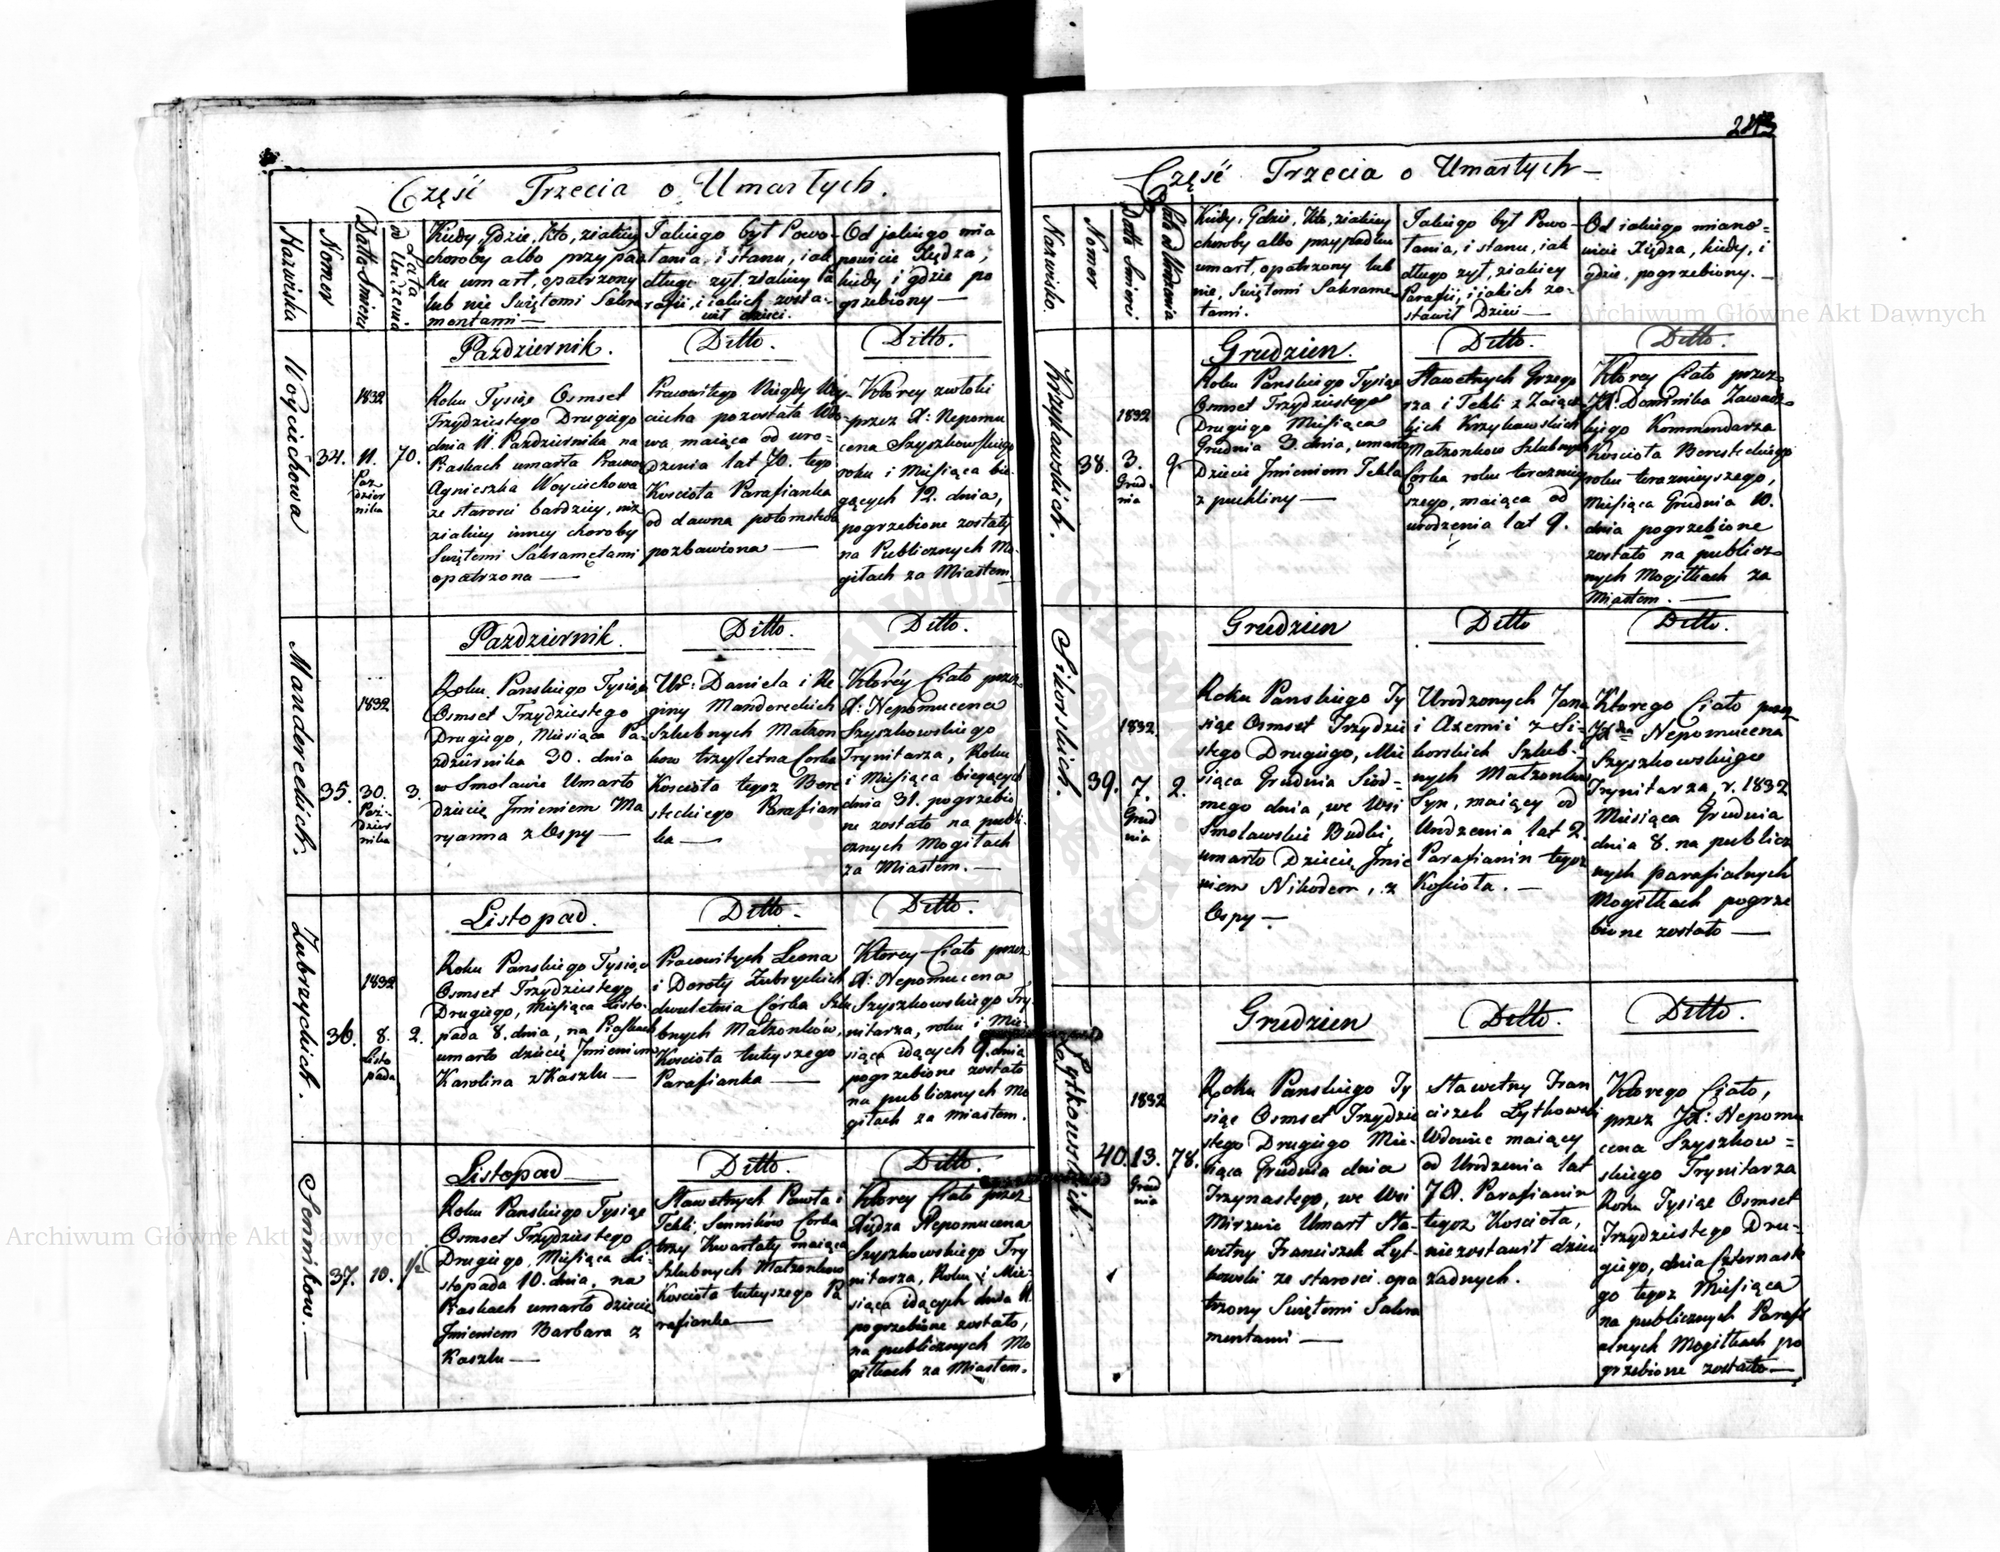 Część Trzecia o Umarłych.
Nazwiska
Nomer
Datta Smierci
Lata od Urodzenia
Kiedy, Gdzie, kto, ziakiey
choroby albo przypad
ku umarł, opatrzony
lub nie Swiętemi Sakra
mentami —
Jakiego był Powo-
łania, i stanu, iak
długo zył, ziakiey Pa
rafii, i iakich zosta-
wił dzieci.
Od jakiego mia
nowicie Xiędza,
kiedy i gdzie po
grzebiony —
Woyciuchowa
34.
1832
11.
Paz
dzier
nika
70.
Pazdziernik.
Roku Tysiąc Osmset
Trzydziestego Drugiego
dnia 11. Pazdziernika na
Piaskach umarła Pracow
Agnieszka Woyciuchowa
ze starosci bardziey, niz
ziakiey inney choroby
Swiętemi Sakramętami
opatrzona —
Ditto.
Pracowitego Niegdy Woy-
ciucha pozostała Wdo-
wa, maiąca od uro-
dzenia lat 70. tego
Koscioła Parafianka
od dawna potomstwa
pozbawiona —
Ditto.
Ktorey zwłoki
przez X: Nepomu
cena Szyszkowskiego
roku i Miesiąca bie-
gących 12. dnia,
pogrzebione zostały
na Publicznych Mo-
giłach za Miastem.
Mandereckich.
35.
1832
30.
Paz-
dzier
nika
3.
Pazdziernik.
Roku Panskiego Tysiąc
Osmset Trzydziestego
Drugiego, Miesiąca Pa-
zdziernika 30. dnia
w Smolawie Umarło
Dziecię Jmieniem Ma
ryanna z Ospy —
Ditto.
Ur: Daniela i Re
giny Mandereckich
Szlubnych Małzon
kow trzyletna Corka
Koscioła tegoz Bere
steckiego Parafian
ka —
Ditto.
Ktorey Ciało przez
X: Nepomucena
Szyszkowskiego
Trynitarza, Roku
i Miesiąca bieżących
dnia 31. pogrzebio
ne zostało na publi-
cznych Mogiłach
za Miastem. —
Zubrzyckich.
36.
1832
8.
Listo
pada
2.
Listopad.
Roku Panskiego Tysiąc
Osmset Trzydziestego
Drugiego, Miesiąca Listo-
pada 8. dnia, na Piaskach
umarło dziecię Jmieniem
Karolina z Kaszlu —
Ditto.
Pracowitych Leona
i Doroty Zubrzyckich
dwuletnia Córka Szlu
bnych Małzonków,
Koscioła tuteyszego
Parafianka —
Ditto.
Ktorey Ciało przez
X: Nepomucena
Szyszkowskiego Try-
nitarza, roku i Mie-
siąca idących 9. dnia
pogrzebione zostało
na publicznych Mo
giłach za miastem.
Sennikow. —
37.
10.
Listopad —
Roku Panskiego Tysiąc
Osmset Trzydziestego
Drugiego, Miesiąca Li-
stopada 10. dnia, na
Piaskach umarło dziecię
Jmieniem Barbara z
Kaszlu —
Ditto.
Sławetnych Pawła i
Tekli, Senników Corka
trzy Kwartały maiąca
Szlubnych Małzonkow
Koscioła tuteyszego Pa
rafianka —
Ditto.
Ktorey Ciało przez
Xiędza Nepomucena
Szyszkowskiego Try
nitarza, Roku i Mie-
siąca idących dnia 11.
pogrzebione zostało,
na publicznych Mo
giłkach za Miastem.
Część Trzecia o Umarłych —
Nazwisko.
Nomer
Datta Smierci
Lata od Urodzenia
Kiedy, Gdzie, Kto, ziakiey
choroby albo przypadku
umarł, opatrzony lub
nie, Swiętemi Sakramen
tami.
Jakiego był Powo-
łania, i stanu, iak
długo zył, ziakiey
Parafii, i iakich zo-
stawił Dzieci —
Od iakiego miano-
wicie Xiędza, kiedy, i
gdzie, pogrzebiony. —
Krzykawskich.
38.
1832
3.
Grud-
nia
9.
Grudzien.
Roku Panskiego Tysiąc
Osmset Trzydziestego
Drugiego Miesiąca
Grudnia 3. dnia, umarło
Dziecie Jmieniem Tekla
z puchliny —
Ditto.
Sławetnych Grzego
rza i Tekli z Zaiącz
kich Krzykawskich
Małzonkow Szlubnych
Corka roku teraznie
szego, maiąca od
urodzenia lat 9.
Ditto.
Ktorey Ciało przez
JX: Dominika Zawadz-
kiego Kommendarza
Koscioła Beresteckiego
roku teraznieyszego,
Miesiąca Grudnia 10.
dnia pogrzebione
zostało na publicz-
nych Mogiłkach za
Miastem. —
Sikorskich.
39.
1832
7.
Grud
nia
2.
Grudzien
Roku Panskiego Ty
siąc Osmset Trzydzie
stego Drugiego, Mie
siąca Grudnia Siod-
mego dnia, we Wsi
Smolawskie Budki,
umarło Dziecię Jmie
niem Nikodem, z
Ospy —
Ditto
Urodzonych Jana
i Axemii z Si-
korskich Szlub-
nych Małzonkow
Syn, maiący od
Urodzenia lat 2.
Parafianin tegoz
Koscioła. —
Ditto.
Ktorego Ciało przez
JXdza Nepomucena
Szyszkowskiego
Trynitarza, r. 1832
Miesiąca Grudnia
dnia 8. na publicz
nych parafialnych
Mogiłkach pogrze
bione zostało —
Łytkowskich.
40.
1832
13.
Grud
nia
78.
Grudzien
Roku Panskiego Ty
siąc Osmset Trzydzie
stego Drugiego Mie-
siąca Grudnia dnia
Trzynastego, we Wsi
Mirznie Umarł Sła-
wetny Franciszek Łyt-
kowski ze starosci opa
trzony Swiętemi Sakra
mentami —
Ditto.
Sławetny Fran
ciszek Łytkowski
Wdowiec maiący
od Urodzenia lat
78. Parafianin
tegoz Koscioła,
niezostawił dzieci
zadnych.
Ditto.
Ktorego Ciało,
przez JX: Nepomu
cena Szyszkow-
skiego Trynitarza
Roku Tysiąc Osmset
Trzydziestego Dru-
giego, dnia Czternaste
go tegoz Miesiąca
na publicznych Parafi
alnych Mogiłkach po
grzebione zostało —
Archiwum Główne Akt Dawnych
Archiwum Główne Akt Dawnych